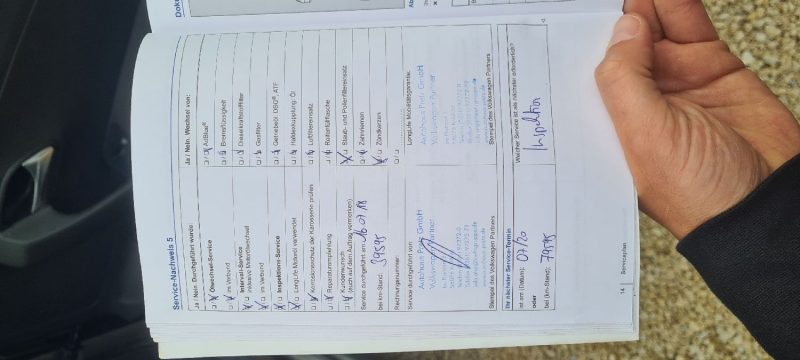 Service-Nachweis 5
Ja / Nein Durchgeführt wurde:
Ölwechsel-Service
im Verbund
Intervall-Service
inklusive Motorölwechsel
im Verbund
Inspektions-Service
LongLife Motoröl verwendet
Korrosionsschutz der Karosserie prüfen
Reparaturempfehlung
Kundenwunsch
(auch auf dem Auftrag vermerken)
Service durchgeführt am: 16.07.18
bei km-Stand: 39595
Rechnungsnummer:
Service durchgeführt von:
Autohaus Petz GmbH
Volkswagen Partner
Stempel des Volkswagen Partners
Ja / Nein Wechsel von:
AdBlue®
Bremsflüssigkeit
Dieselkraftstofffilter
Gasfilter
Getriebeöl: DSG®, ATF
Haldexkupplung: Öl
Luftfiltereinsatz
Reifenfüllflasche
Staub- und Pollenfiltereinsatz
Zahnriemen
Zündkerzen
LongLife Mobilitätsgarantie:
Autohaus Petz GmbH
Volkswagen Partner
Stempel des Volkswagen Partners
Ihr nächster Service-Termin
ist am (Datum): 07/20
oder
bei (km-Stand): 79595
Welcher Service ist als nächster erforderlich?
Inspektion
14
Serviceplan